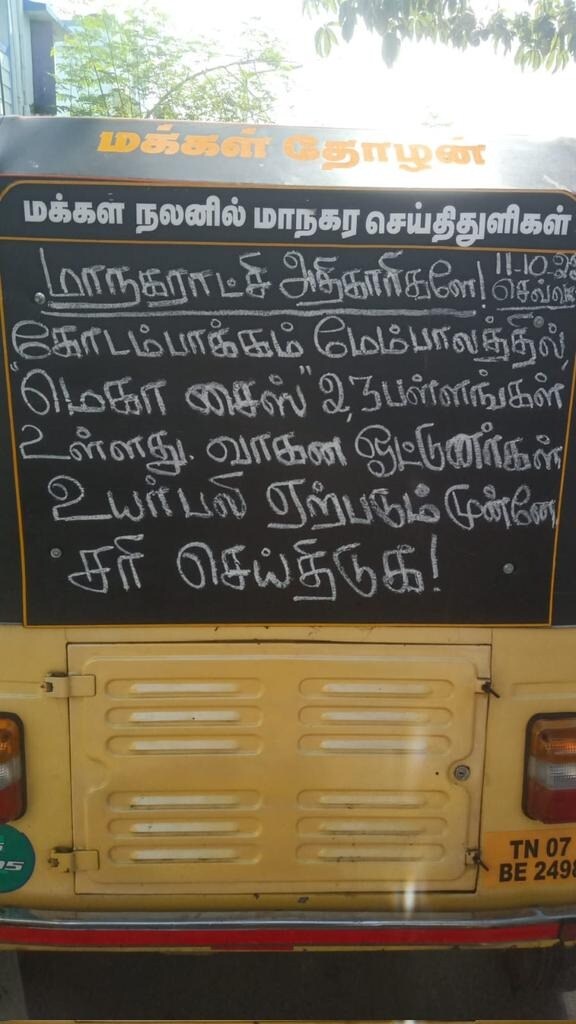 மக்கள் தோழன்
மக்கள் நலனில் மாநகர செய்திதுளிகள்
மாநகராட்சி அதிகாரிகளே!
11-10-22
கோடம்பாக்கம் மேம்பாலத்தில்,
"மெகா சைஸ்" 2,3 பள்ளங்கள்
உள்ளது. வாகன ஓட்டுனர்கள்
உயர்பலி ஏற்படும் முன்னே
சரி செய்திடுக!
TN 07
BE 2498